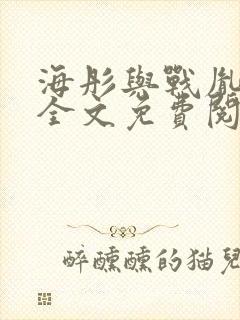 海彤與戰胤
全文免費閱
醉醺醺的猫兒